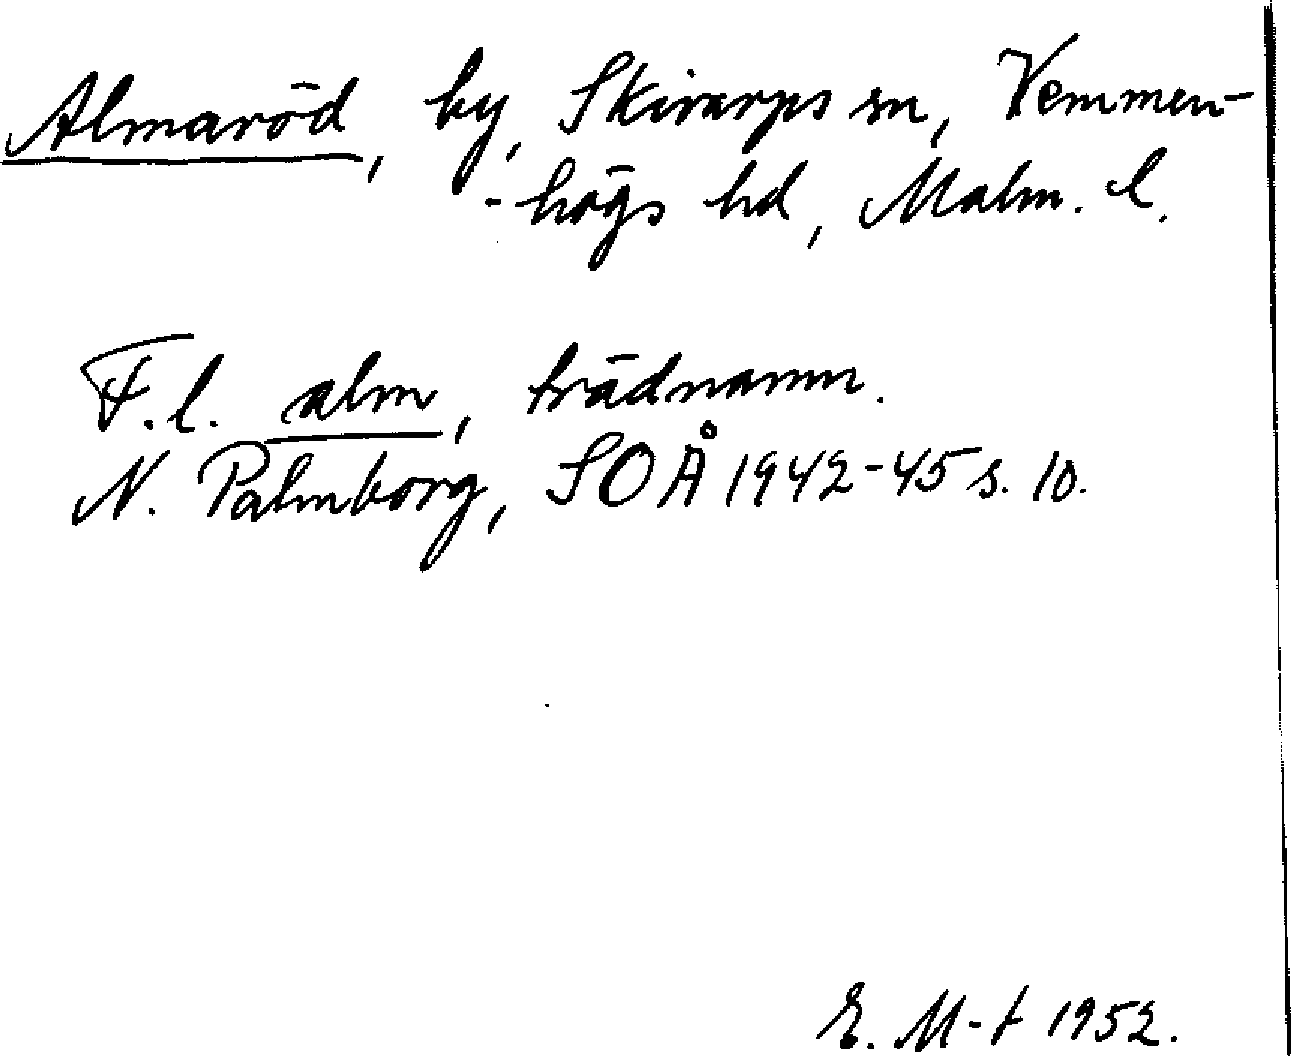 Almaröd, by, Skivarps sn, Vemmen-
-högs hd, Malm. l.
F.l. alm, trädnamn.
N. Palmborg, SOÅ 1942-45 s. 10.
E. M-t 1952.